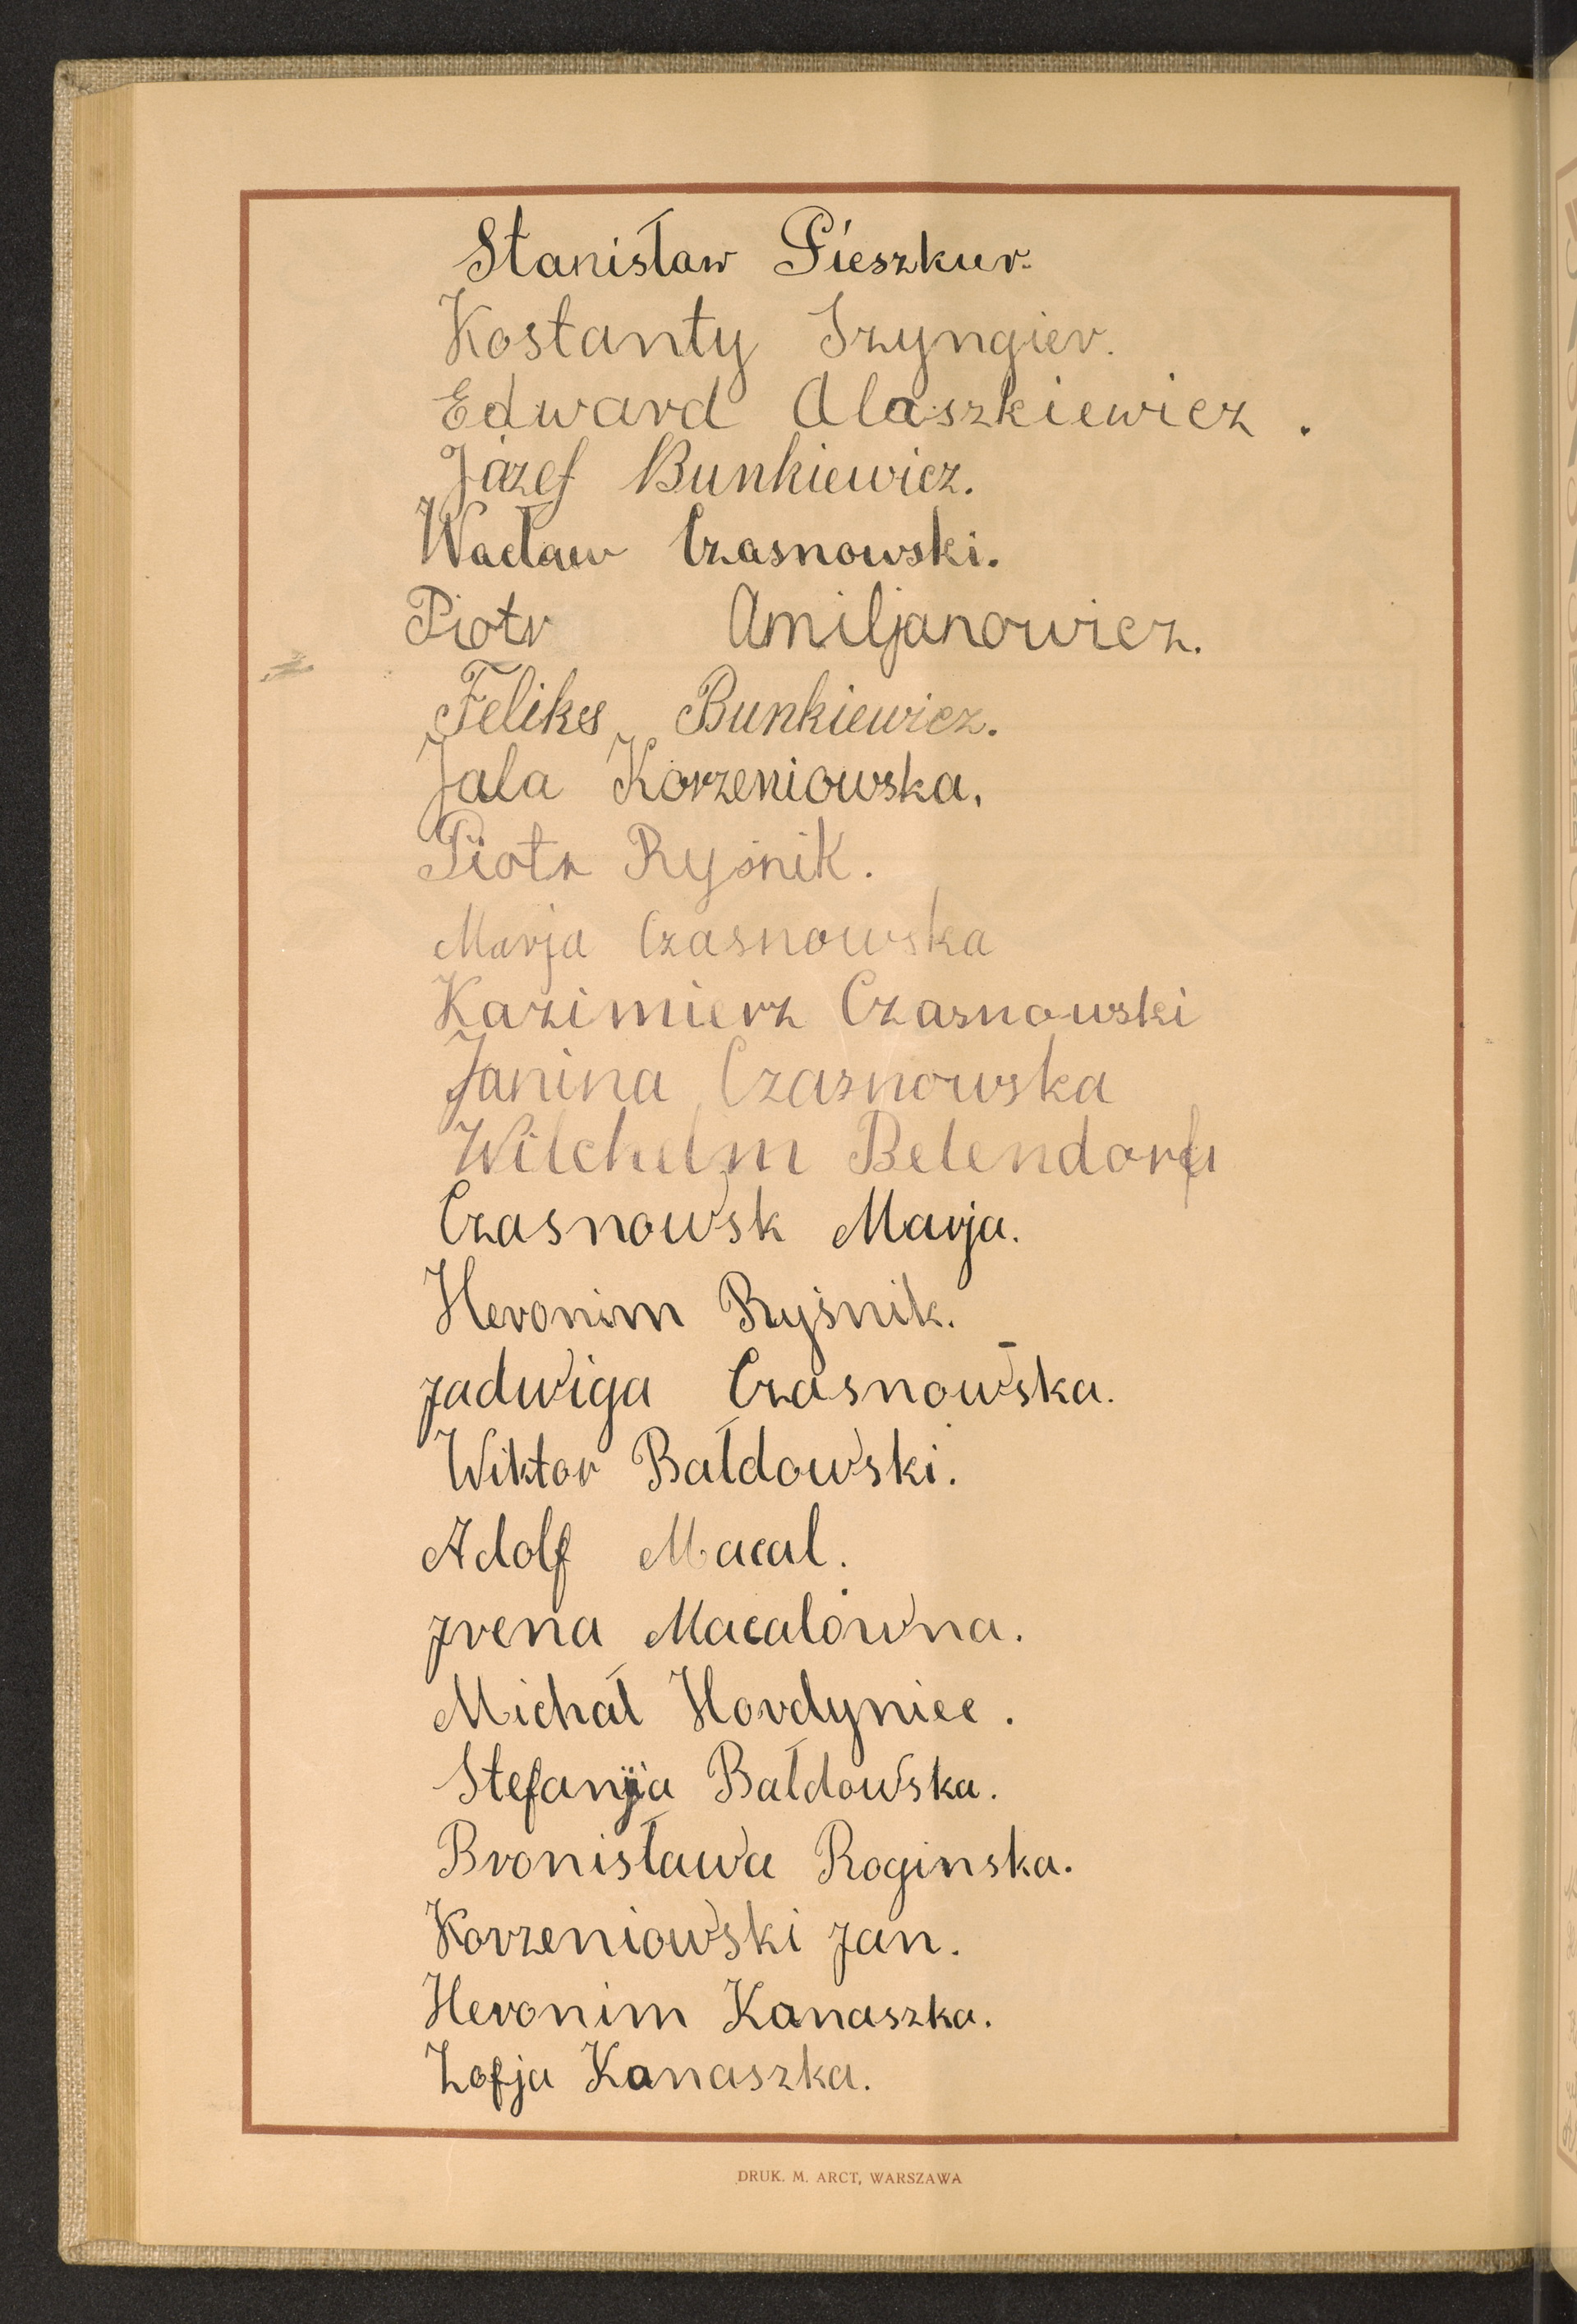 Stanisław Pieszkur.
Kostanty Szyngier.
Edward Alaszkiewicz.
Józef Bunkiewicz.
Wacław Czasnowski.
Piotr Amiljanowicz.
Felikes Bunkiewicz.
Jala Korzeniowska.
Piotr Ryśnik.
Marja Czasnowska
Kazimierz Czasnowski
Janina Czasnowska
Wilchelm
Czasnowsk Marja.
Heronim Ryśnik.
Jadwiga Czasnowska.
Wiktor Bałdowski.
Adolf Macal.
Jrena Macalówna.
Michał Hordyniec.
Stefanja Bałdowska.
Bronisława Roginska.
Korzeniowski Jan.
Heronim Kanaszka.
Zofja Kanaszka.
DRUK. M. ARCT, WARSZAWA